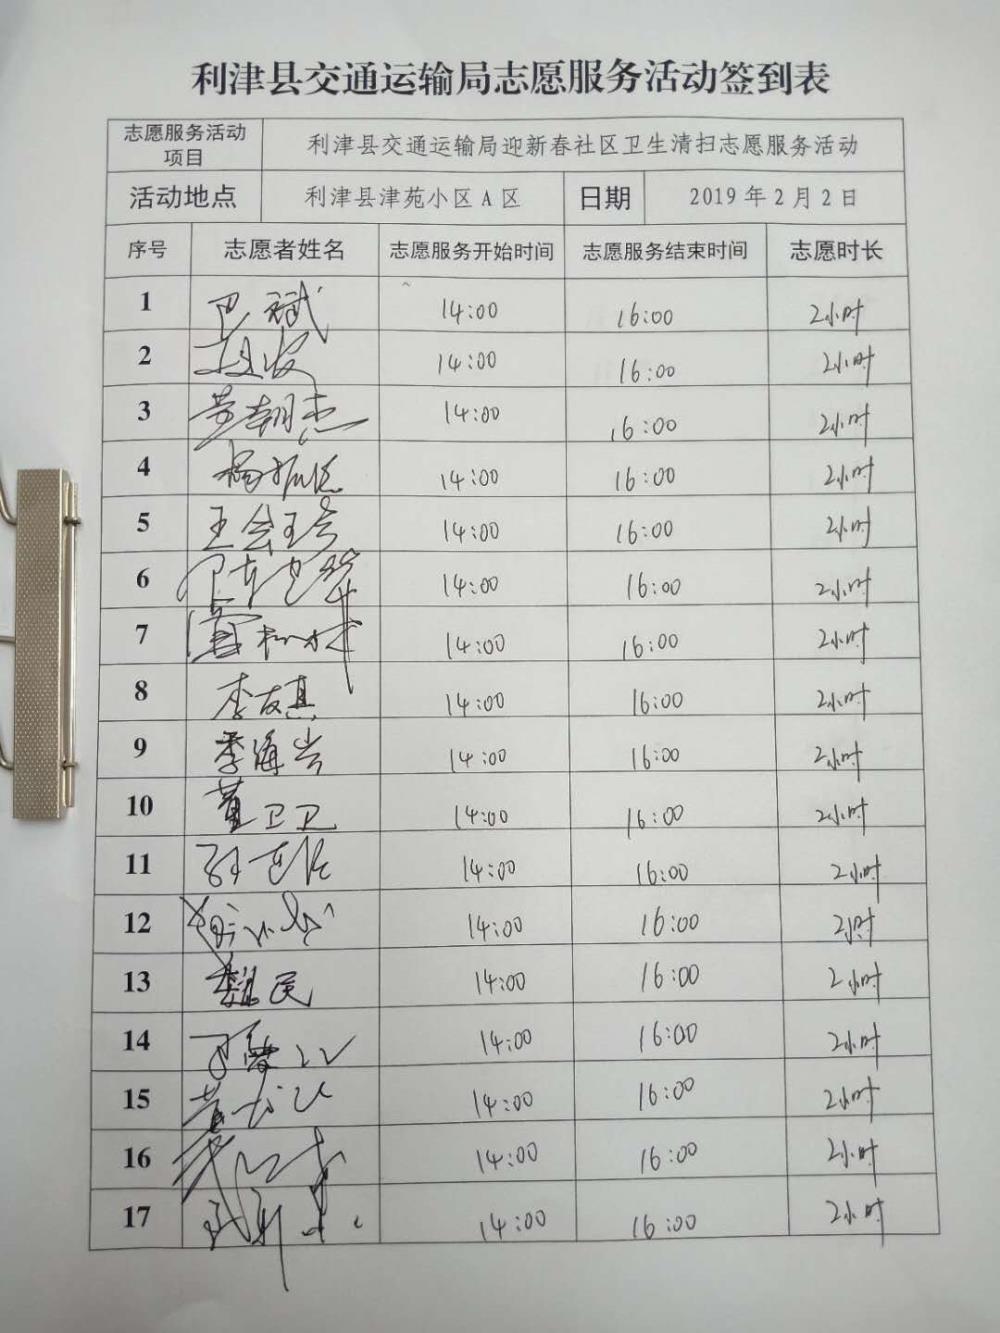 利津县交通运输局志愿服务活动签到表
志愿服务活动
项目
利津县交通运输局迎新春社区卫生清扫志愿服务活动
活动地点 利津县津苑小区A区 日期 2019年2月2日
序号 志愿者姓名 志愿服务开始时间 志愿服务结束时间 志愿时长
1 巴斌 14:00 16:00 2小时
2 14:00 16:00 2小时
3 朝杰 14:00 16:00 2小时
4 杨振悦 14:00 16:00 2小时
5 王会 14:00 16:00 2小时
6 14:00 16:00 2小时
7 14:00 16:00 2小时
8 李友真 14:00 16:00 2小时
9 季海岩 14:00 16:00 2小时
10 董卫卫 14:00 16:00 2小时
11 14:00 16:00 2小时
12 14:00 16:00 2小时
13 魏民 14:00 16:00 2小时
14 14:00 16:00 2小时
15 14:00 16:00 2小时
16 14:00 16:00 2小时
17 14:00 16:00 2小时